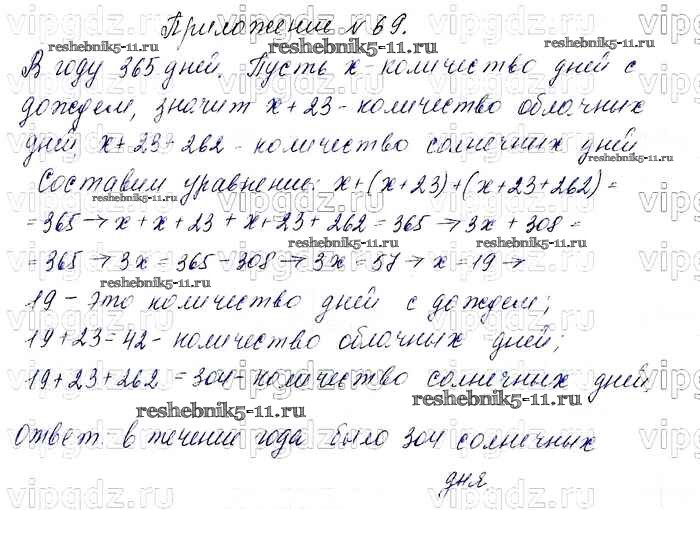 Приложение № 69.
reshebnik5-11.ru reshebnik5-11.ru
В году 365 дней. Пусть x - количество дней с
дождем, значит x + 23 - количество облачных
дней, x + 23 + 262 - количество солнечных дней
reshebnik5-11.ru
Составим уравнение: x + (x + 23) + (x + 23 + 262) =
= 365 → x + x + 23 + x + 23 + 262 = 365 → 3x + 308 =
reshebnik5-11.ru reshebnik5-11.ru
= 365 → 3x = 365 - 308 → 3x = 57 → x = 19 →
reshebnik5-11.ru
19 - это количество дней с дождем;
19 + 23 = 42 - количество облачных дней;
19 + 23 + 262 = 304 - количество солнечных дней.
reshebnik5-11.ru reshebnik5-11.ru
Ответ: в течение года было 304 солнечных
дня
vipgdz.ru vipgdz.ru vipgdz.ru